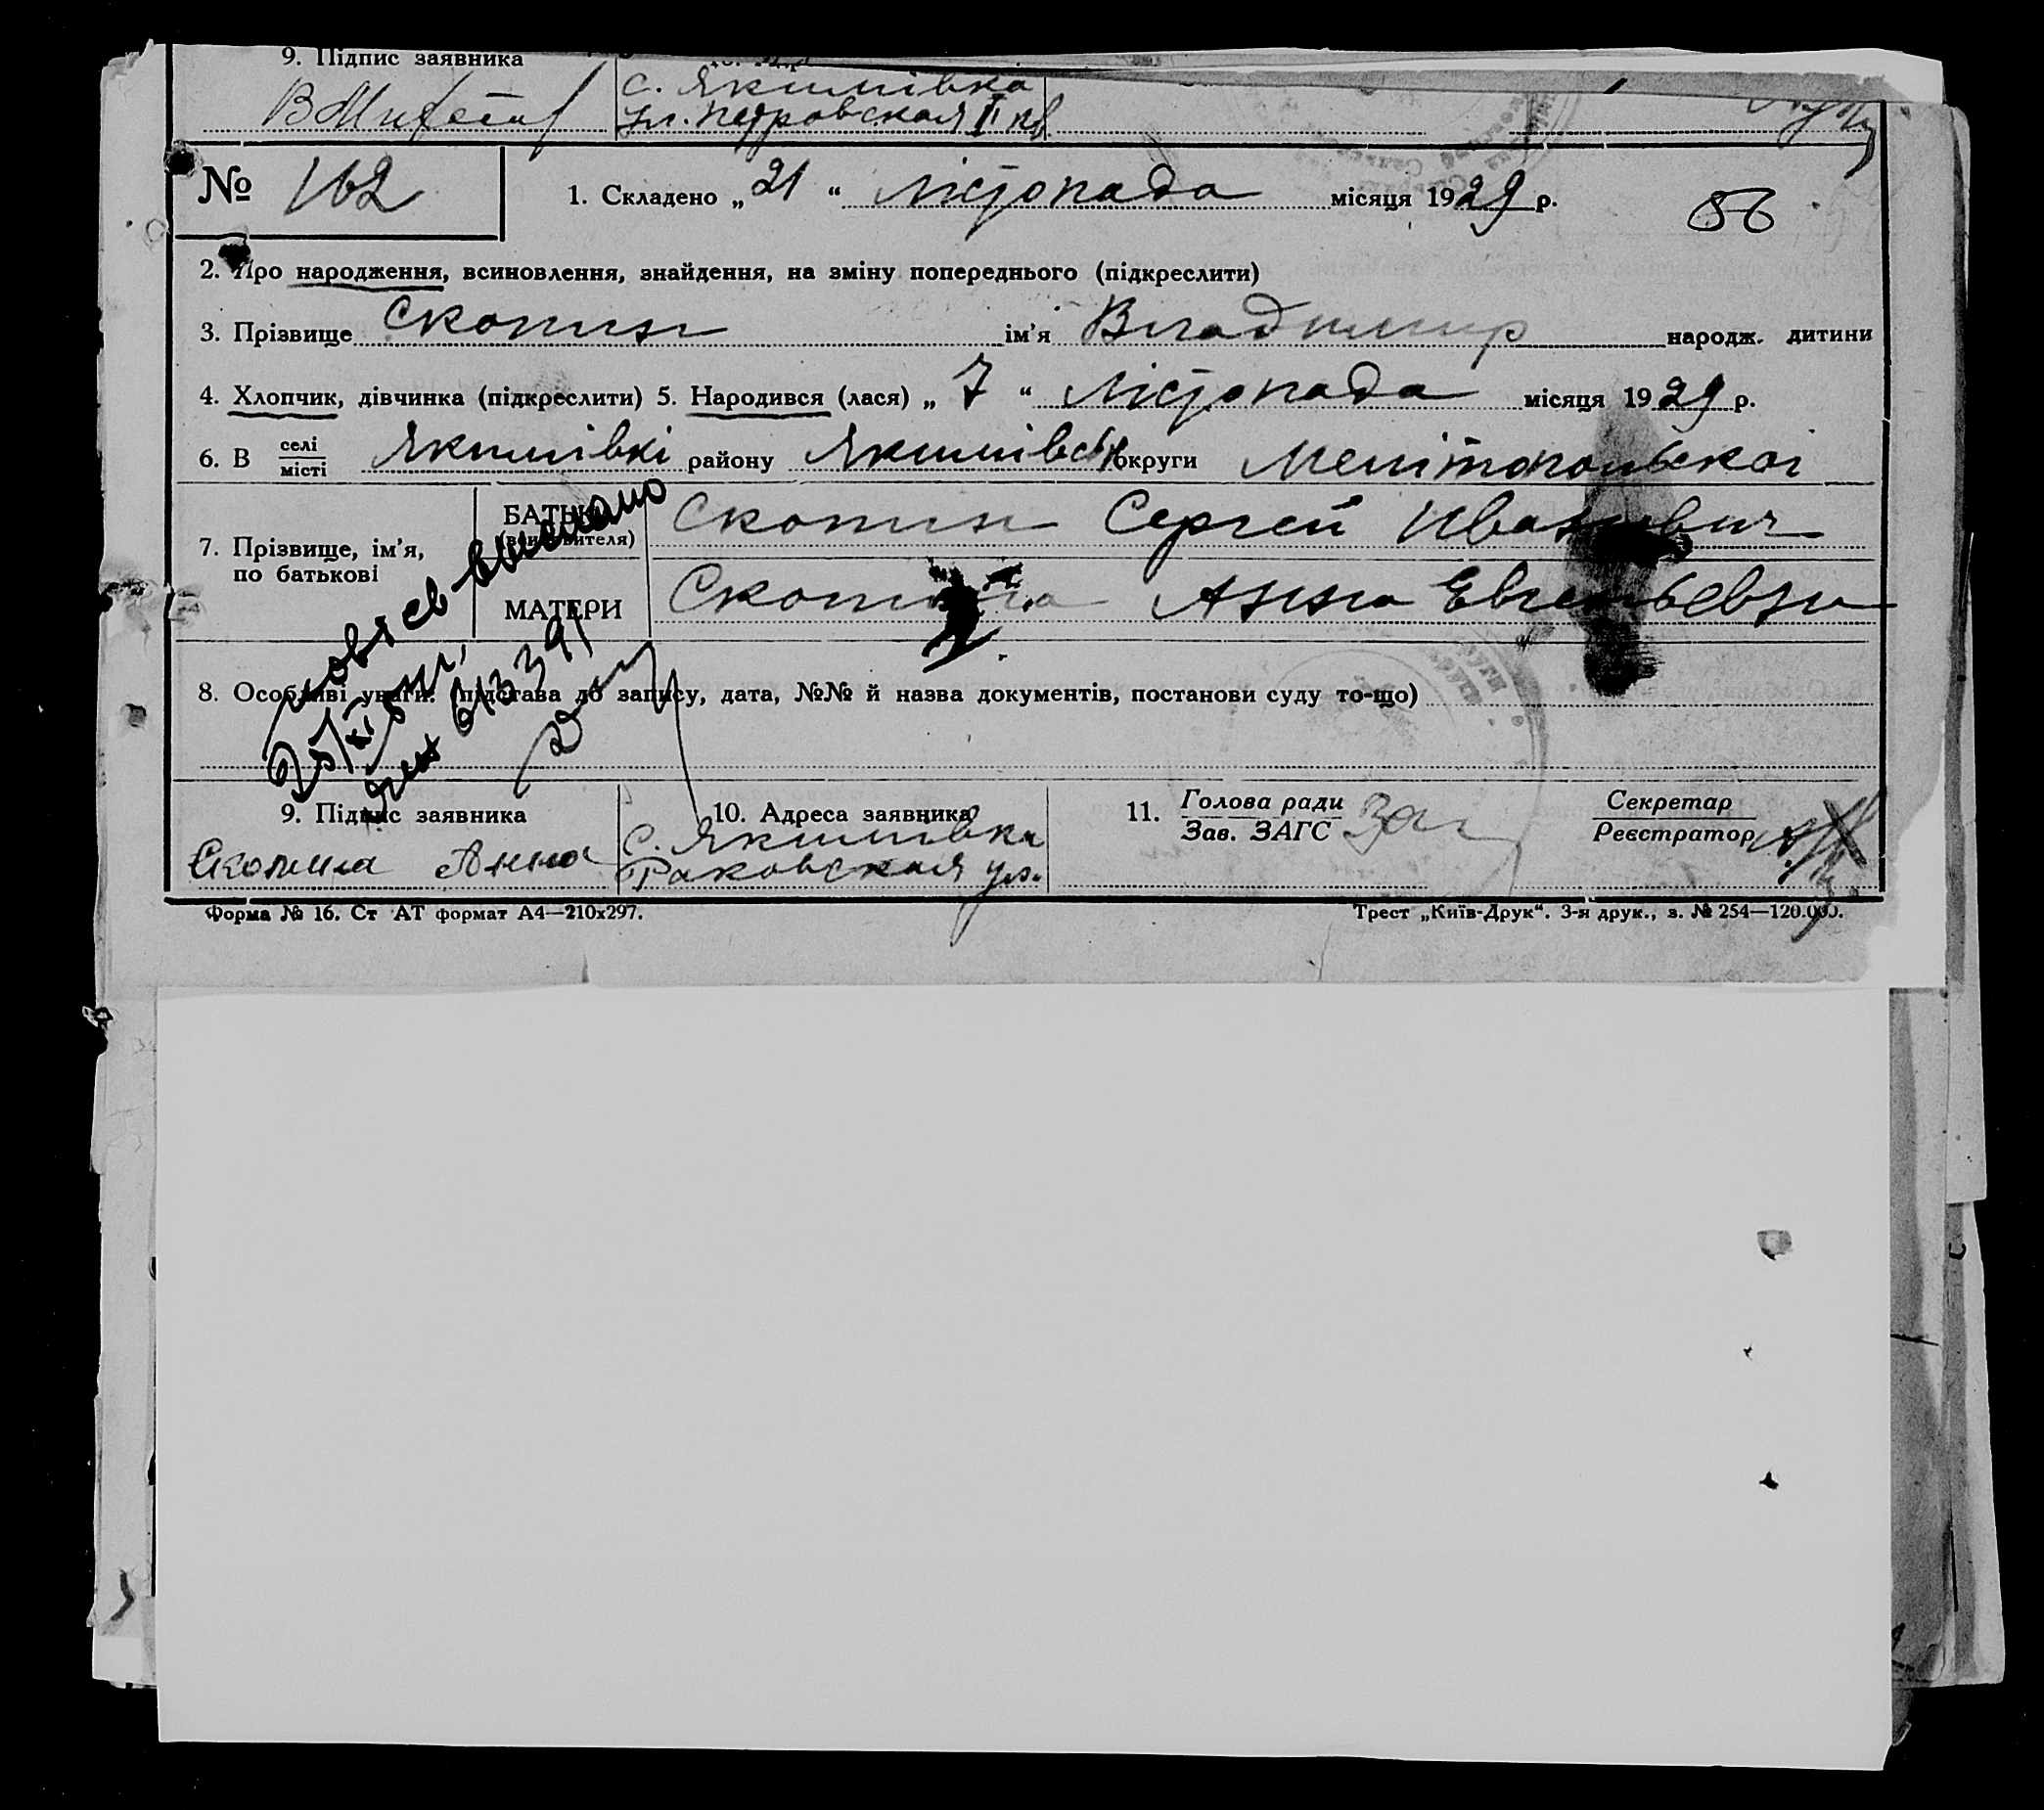 9. Підпис заявника
с. Якимівка
ул. Петровская II кв.
№ 162
1. Складено „ 21 “ лістопада місяця 1929 р.
56
2. Про народження, всиновлення, знайдення, на зміну попереднього (підкреслити)
3. Прізвище Скопин ім'я Владимир народж. дитини
4. Хлопчик, дівчинка (підкреслити) 5. Народився (лася) „ 7 “ Лістопада місяця 1929 р.
6. В селі/місті Якимівкі району Якимівськ округи Мелітопольскоі
7. Прізвище, ім'я, по батькові
БАТЬКА Скопин Сергей Иванович
МАТЕРИ Скопина Анна Евгеньевна
8. Особливі уваги: (підстава до запису, дата, №№ й назва документів, постанови суду то-що)
9. Підпис заявника
Скопина Анна
10. Адреса заявника
С. Якимівка
Раковская ул.
11. Голова ради
Зав. ЗАГС
Секретар
Реєстратор
Форма № 16. Ст АТ формат А4—210х297.
Трест „Київ-Друк“. 3-я друк., з. № 254—120.000.